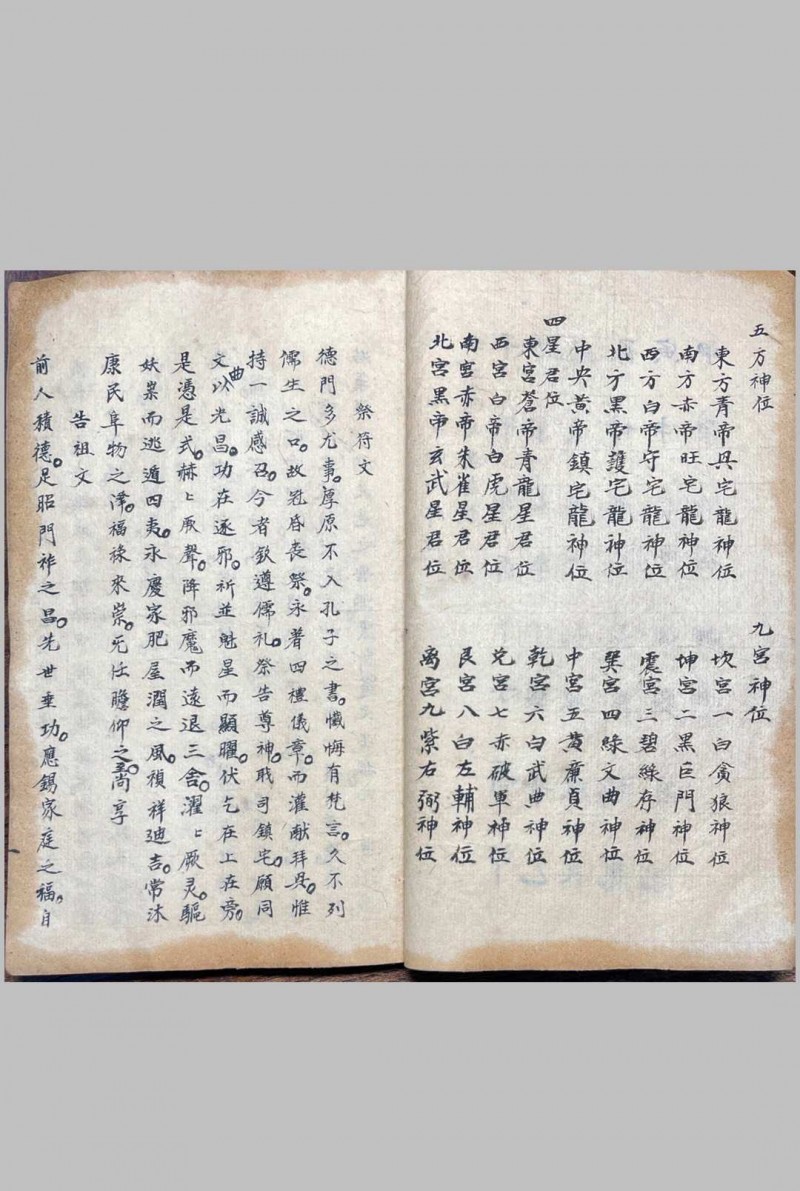 五方神位
東方青帝兴宅龍神位
南方赤帝旺宅龍神位
西方白帝守宅龍神位
北方黑帝護宅龍神位
中央黄帝鎮宅龍神位
四星君位
東宮蒼帝青龍星君位
西宮白帝白虎星君位
南宮赤帝朱雀星君位
北宮黑帝玄武星君位
九宮神位
坎宮一白貪狼神位
坤宮二黑巨門神位
震宮三碧綠存神位
巽宮四綠文曲神位
中宮五黄廉貞神位
乾宮六白武曲神位
兑宮七赤破軍神位
艮宮八白左輔神位
离宮九紫右弼神位
祭符文
德門多尤事。厚原不入孔子之書。懺悔有梵言。久不列
儒生之口。故冠昏喪祭。永著四禮儀章。而灌献拜畁。惟
持一誠感召。今者欽遵儒礼。祭告尊神。戝司鎮宅。願同
文曲以光昌。功在逐邪。祈並魁星而顯曜。伏乞在上在旁。
是憑是式。赫〻厥聲。阵邪魔而遠退三舍。濯〻厥灵。驅
妖祟而逃遁四夷。永慶家肥屋潤之風。禎祥廸吉。常沐
康民阜物之泽。福祿來崇。旡任瞻仰之至。尚享
告祖文
前人積德。足昭門祚之昌。先世垂功。應錫家庭之福。自